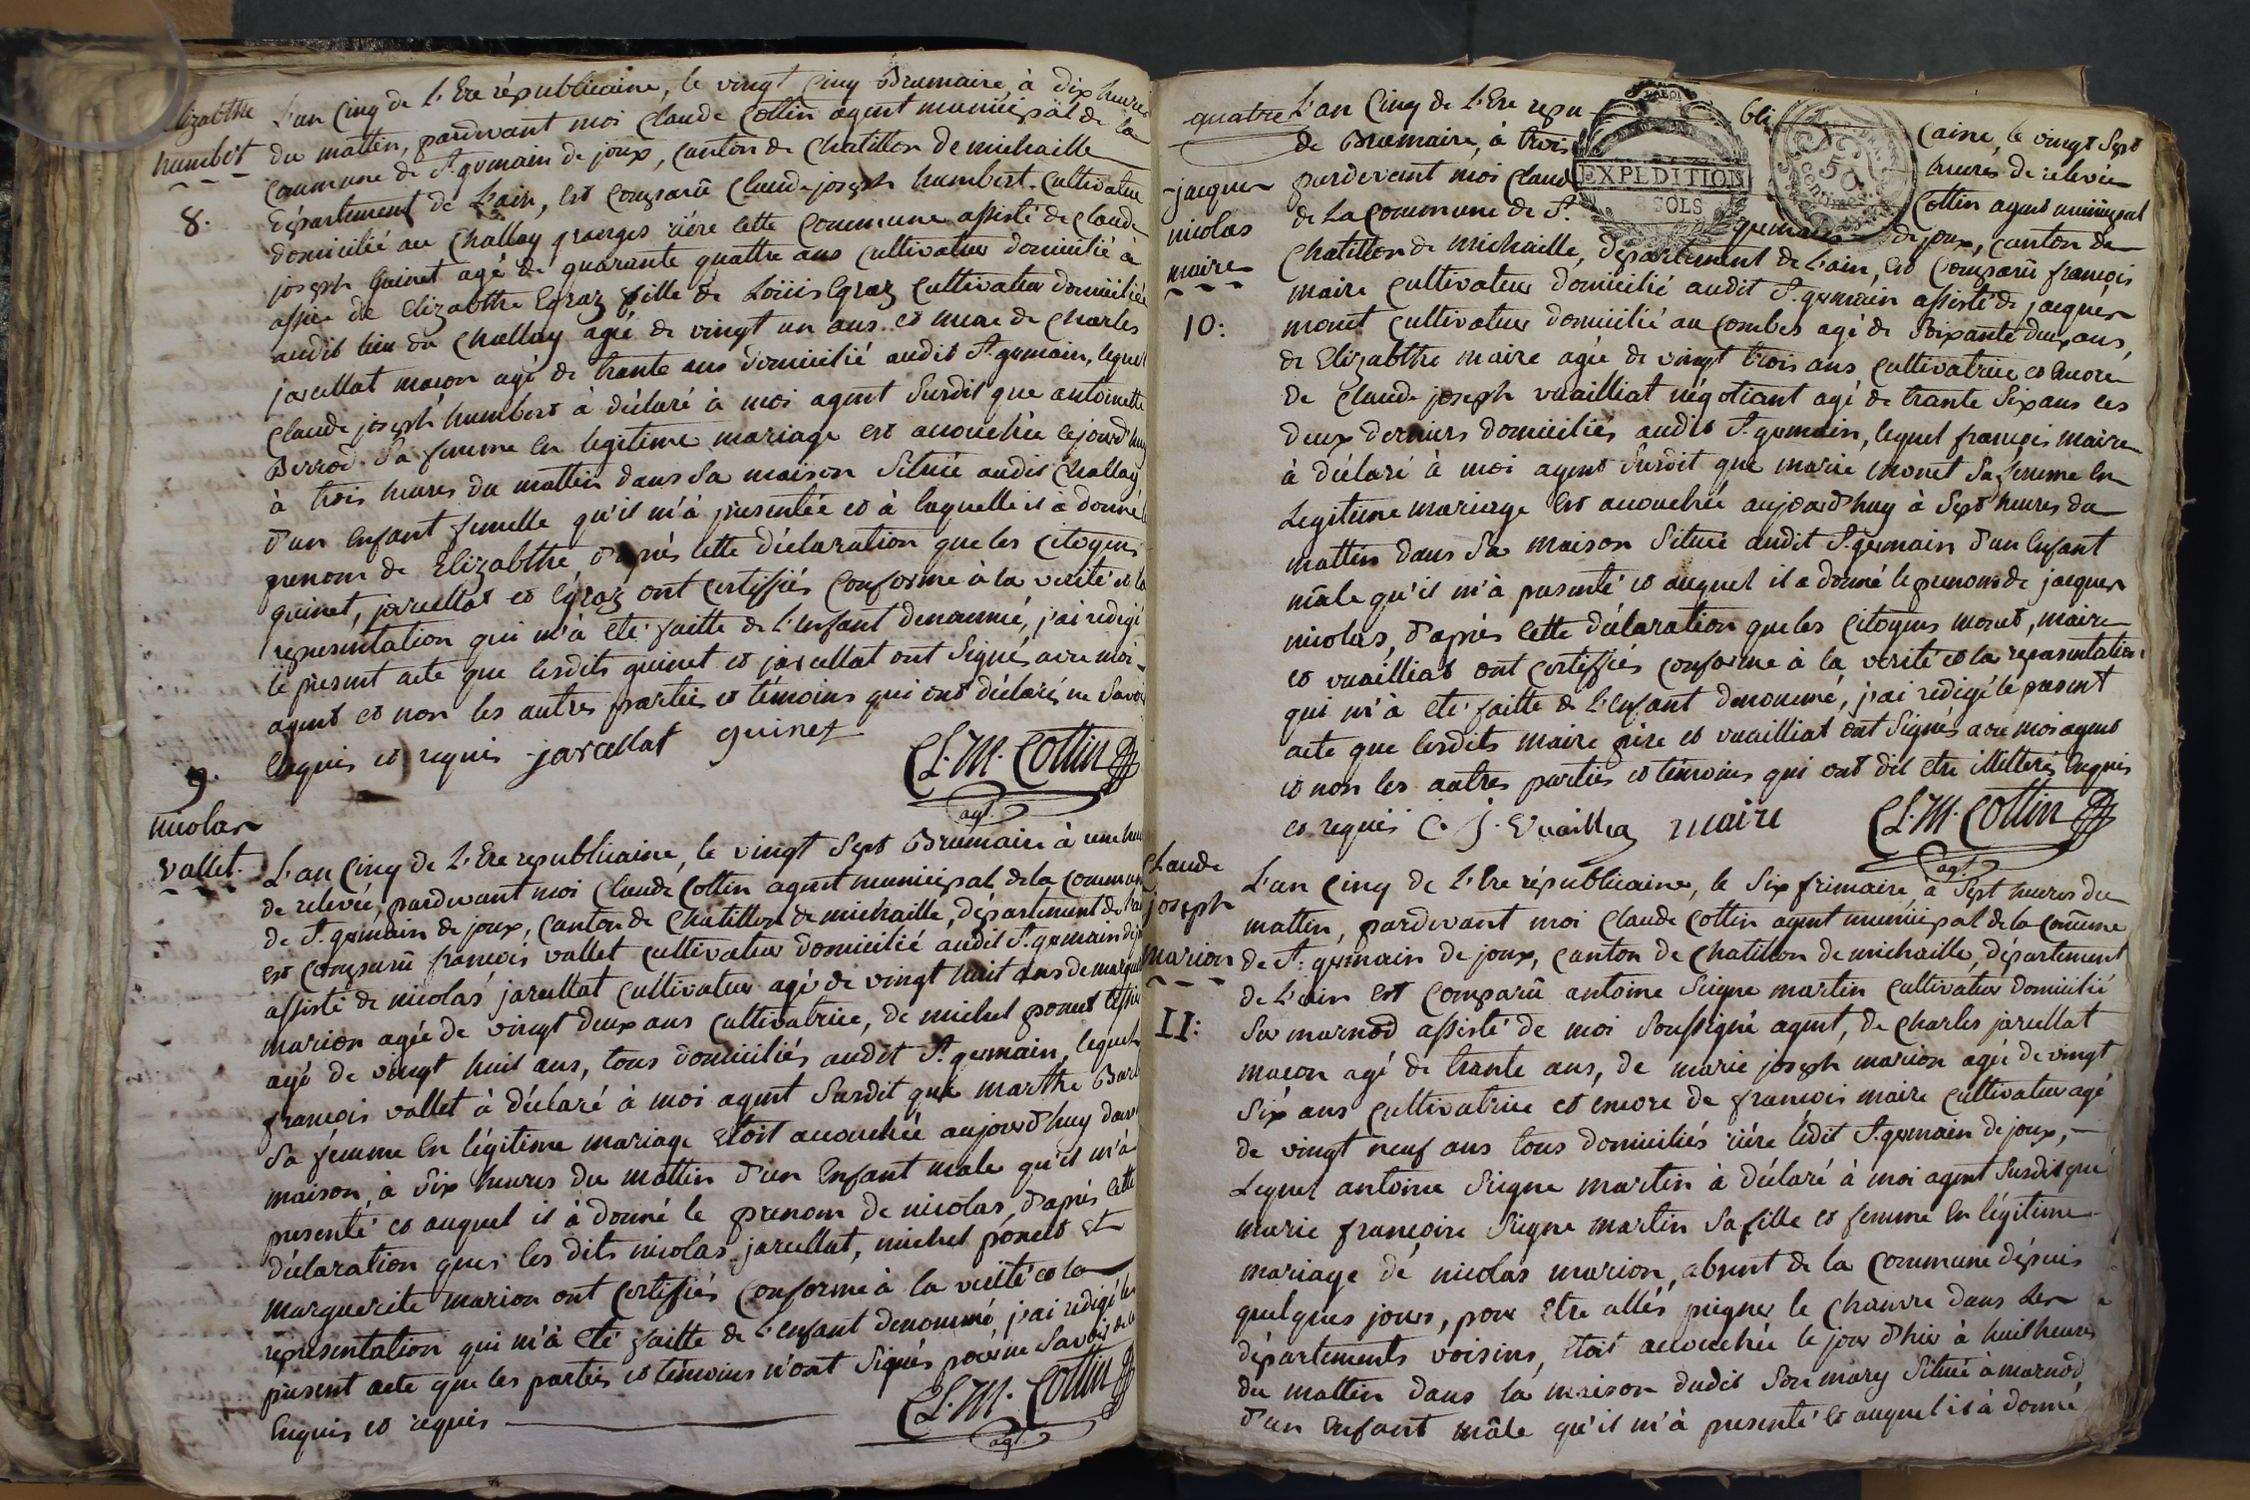 Elizabthe
humbert
8.
L'an Cinq de L'Ere républicaine, le vingt Cinq Brumaire, à dix heures
du mattin, pardevant moi Claude Cottin agent municipal de la
Commune de St. germain de joux, Canton de Chatillon de michaille
Département de L'ain, est Comparû Claude joseph humbert Cultivateur
domicilié au Challay granges rière cette Commune assisté de Claude
joseph Guinet agé de quarante quattre ans Cultivateur domicilié à
de Elizabthe Egraz fille de Loüis Egraz Cultivateur domiciliée
audit lieu du Challay agée de vingt un ans. et encore de Charles
jarcellat maçon agé de trante ans domicilié audit St. germain, lequel
Claude joseph humbert à déclaré à moi agent Susdit que antoinette
Berrod Sa femme En legitime mariage est accouchée cejourd'huy
à trois heures du mattin dans Sa maison Située audit Challay
d'un Enfant femelle qu'il m'à presentée et à laquelle il à donné
prenom de Elizabthe, d'après cette déclaration que les Citoyens
guinet, jarcellat et Egraz ont certiffiés Conforme à la verité et la
representation qui m'à Eté faitte de L'enfant denommé, j'ai redigé
le present acte que lesdits guinet et jarcellat ont Signés avec moi
agent et non les autres parties et témoins qui ont déclarés ne Savoir
Enquis et requis jarcellat guinet
Cl. M. Cottin
agt.
9.
nicolas
vallet.
L'an Cinq de L'Ere republicaine, le vingt Sept Brumaire à une heure
de relevée, pardevant moi Claude Cottin agent municipal de la Commune
de St. germain de joux, Canton de Chatillon de michaille, département de L'ain
est Comparû francois vallet Cultivateur domicilié audit St. germain
assisté de nicolas jarcellat Cultivateur agé de vingt huit ans de marguerite
marion agée de vingt deux ans Cultivatrice, de michel poncet
agé de vingt huit ans, tous domiciliés audit St. germain, lequel
francois vallet à déclaré à moi agent Susdit que marthe
Sa femme En légitime mariage Etoit accouchée aujourd'huy dans
maison, à Six heures du mattin d'un Enfant male qu'il m'à
presenté et auquel il à donné le prenom de nicolas, d'après cette
déclaration que les dits nicolas jarcellat, michel poncet Et
marguerite marion ont Certiffiés Conforme à la verité et la
representation qui m'à Eté faitte de L'enfant denommé j'ai redigé le
present acte que les parties et témoins n'ont Signés pour ne Savoir de ce
Enquis et requis
Cl. M. Cottin
agt.
quatre
jacques
nicolas
maire
10:
EXPEDITION
SOLS
50
centimes
L'an Cinq de L'Ere republicaine, le vingt Sept
de Brumaire, à trois heures de relevée
pardevant moi Claude Cottin agent municipal
de La Commune de St. germain de joux, Canton de
Chatillon de michaille, département de L'ain, est Comparû francois
maire Cultivateur domicilié audit St. germain assisté de jacques
monet Cultivateur domicilié au Combes agé de Soixante deux ans,
de Elizabthe maire agée de vingt trois ans Cultivatrice et Encore
de Claude joseph vuailliat négotiant agé de trante Six ans les
deux derniers domiciliés audit St. germain, lequel francois maire
à déclaré à moi agent Susdit que marie monet Sa femme En
Legitime mariage Est accouchée aujourd'huy à Sept heures du
mattin dans Sa maison Située audit St. germain d'un Enfant
mâle qu'il m'à presenté et auquel il a donné le prenom de jacques
nicolas, d'après cette déclaration que les Citoyens monet, maire
et vuailliat ont certiffiés conforme à la verité et la representation
qui m'à Eté faitte de L'enfant denommé, j'ai redigé le present
acte que lesdits maire père et vuailliat ont Signés avec moi agent
et non les autres parties et témoins qui ont dit être illetterés Enquis
et requis C. J. Vuaillia maire
Cl. M. Cottin
agt.
Claude
joseph
marion
11:
L'an Cinq de L'Ere républicaine, le Six frimaire, à Sept heures du
mattin, pardevant moi Claude Cottin agent municipal de la Comune
de St. germain de joux, Canton de Chatillon de michaille, département
de L'ain Est Comparû antoine Seigne martin Cultivateur domicilié
Sur marnod assisté de moi Soussigné agent, de Charles jarcellat
macon agé de trante ans, de marie joseph marion agée de vingt
Six ans Cultivatrice et encore de francois maire Cultivateur agé
de vingt neuf ans tous domiciliés rière ledit St. germain de joux,
Lequel antoine Seigne martin à déclaré à moi agent Susdit que
marie francoise Seigne martin Sa fille et femme En légitime
mariage de nicolas marion, absent de la Commune dépuis
quelques jours, pour Etre allés peigner le chanvre dans Les
départements voisins, Etoit accouchée le jour d'hier à huit heures
du mattin dans la maison dudit Son mary Située à marnod
d'un Enfant mâle qu'il m'à presenté Et auquel il à donné